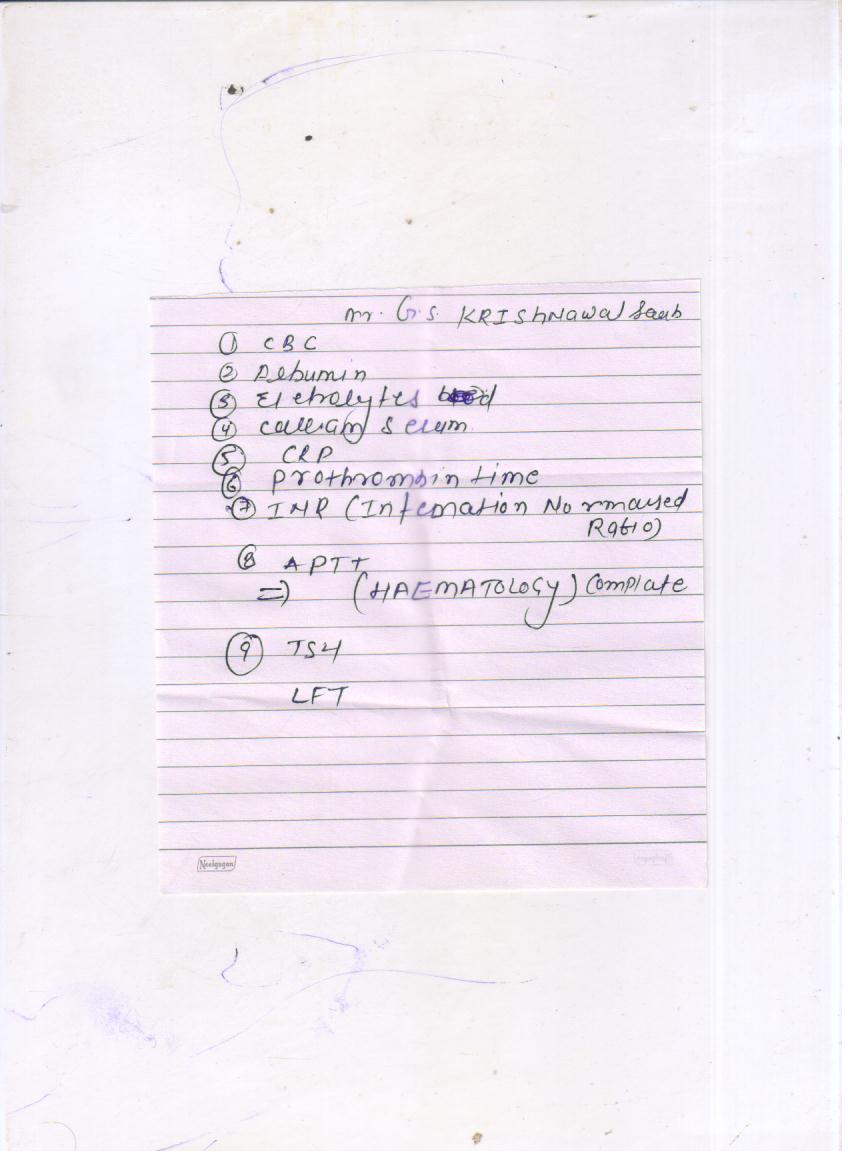 Mr. G.S. KRISHNAWAL Saab
① CBC
② Albumin
③ Eletrolytes
④ Calcium Serum
⑤ CRP
⑥ Prothrombin time
⑦ INR (Internation Normalised
Ratio)
⑧ APTT
⇒ (HAEMATOLOGY) Complate
⑨ TSH
LFT
Neelgagan